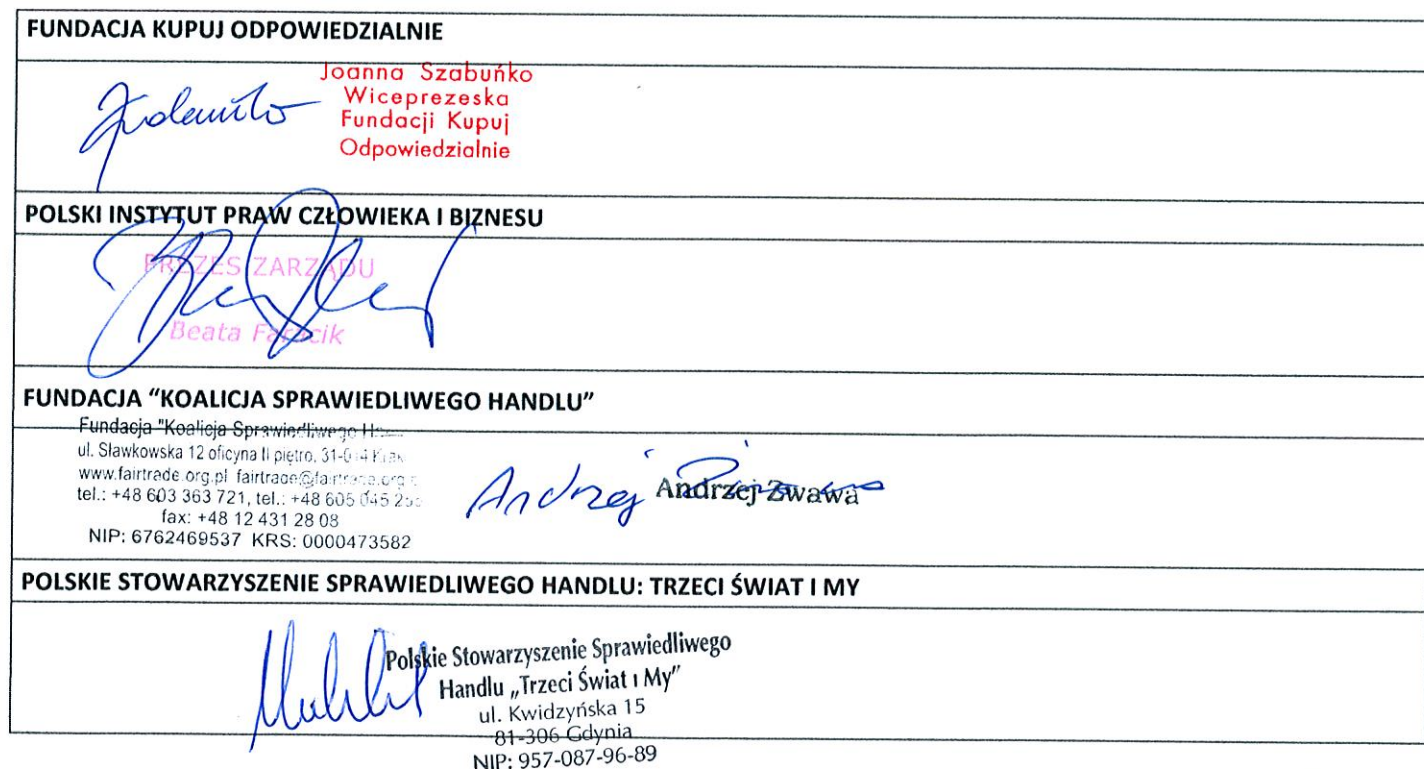 FUNDACJA KUPUJ ODPOWIEDZIALNIE
Joanna Szabuńko
Wiceprezeska
Fundacji Kupuj
Odpowiedzialnie
POLSKI INSTYTUT PRAW CZŁOWIEKA I BIZNESU
PREZES ZARZĄDU
Beata Faracik
FUNDACJA “KOALICJA SPRAWIEDLIWEGO HANDLU”
Fundacja "Koalicja Sprawiedliwego
ul. Sławkowska 12 oficyna II piętro, 31-014
www.fairtrade.org.pl fairtrade@fairtrade.org
tel.: +48 603 363 721, tel.: +48 605 045
fax: +48 12 431 28 08
NIP: 6762469537 KRS: 0000473582
Andrzej
Andrzej Żwawa
POLSKIE STOWARZYSZENIE SPRAWIEDLIWEGO HANDLU: TRZECI ŚWIAT I MY
Polskie Stowarzyszenie Sprawiedliwego
Handlu „Trzeci Świat i My”
ul. Kwidzyńska 15
81-306 Gdynia
NIP: 957-087-96-89